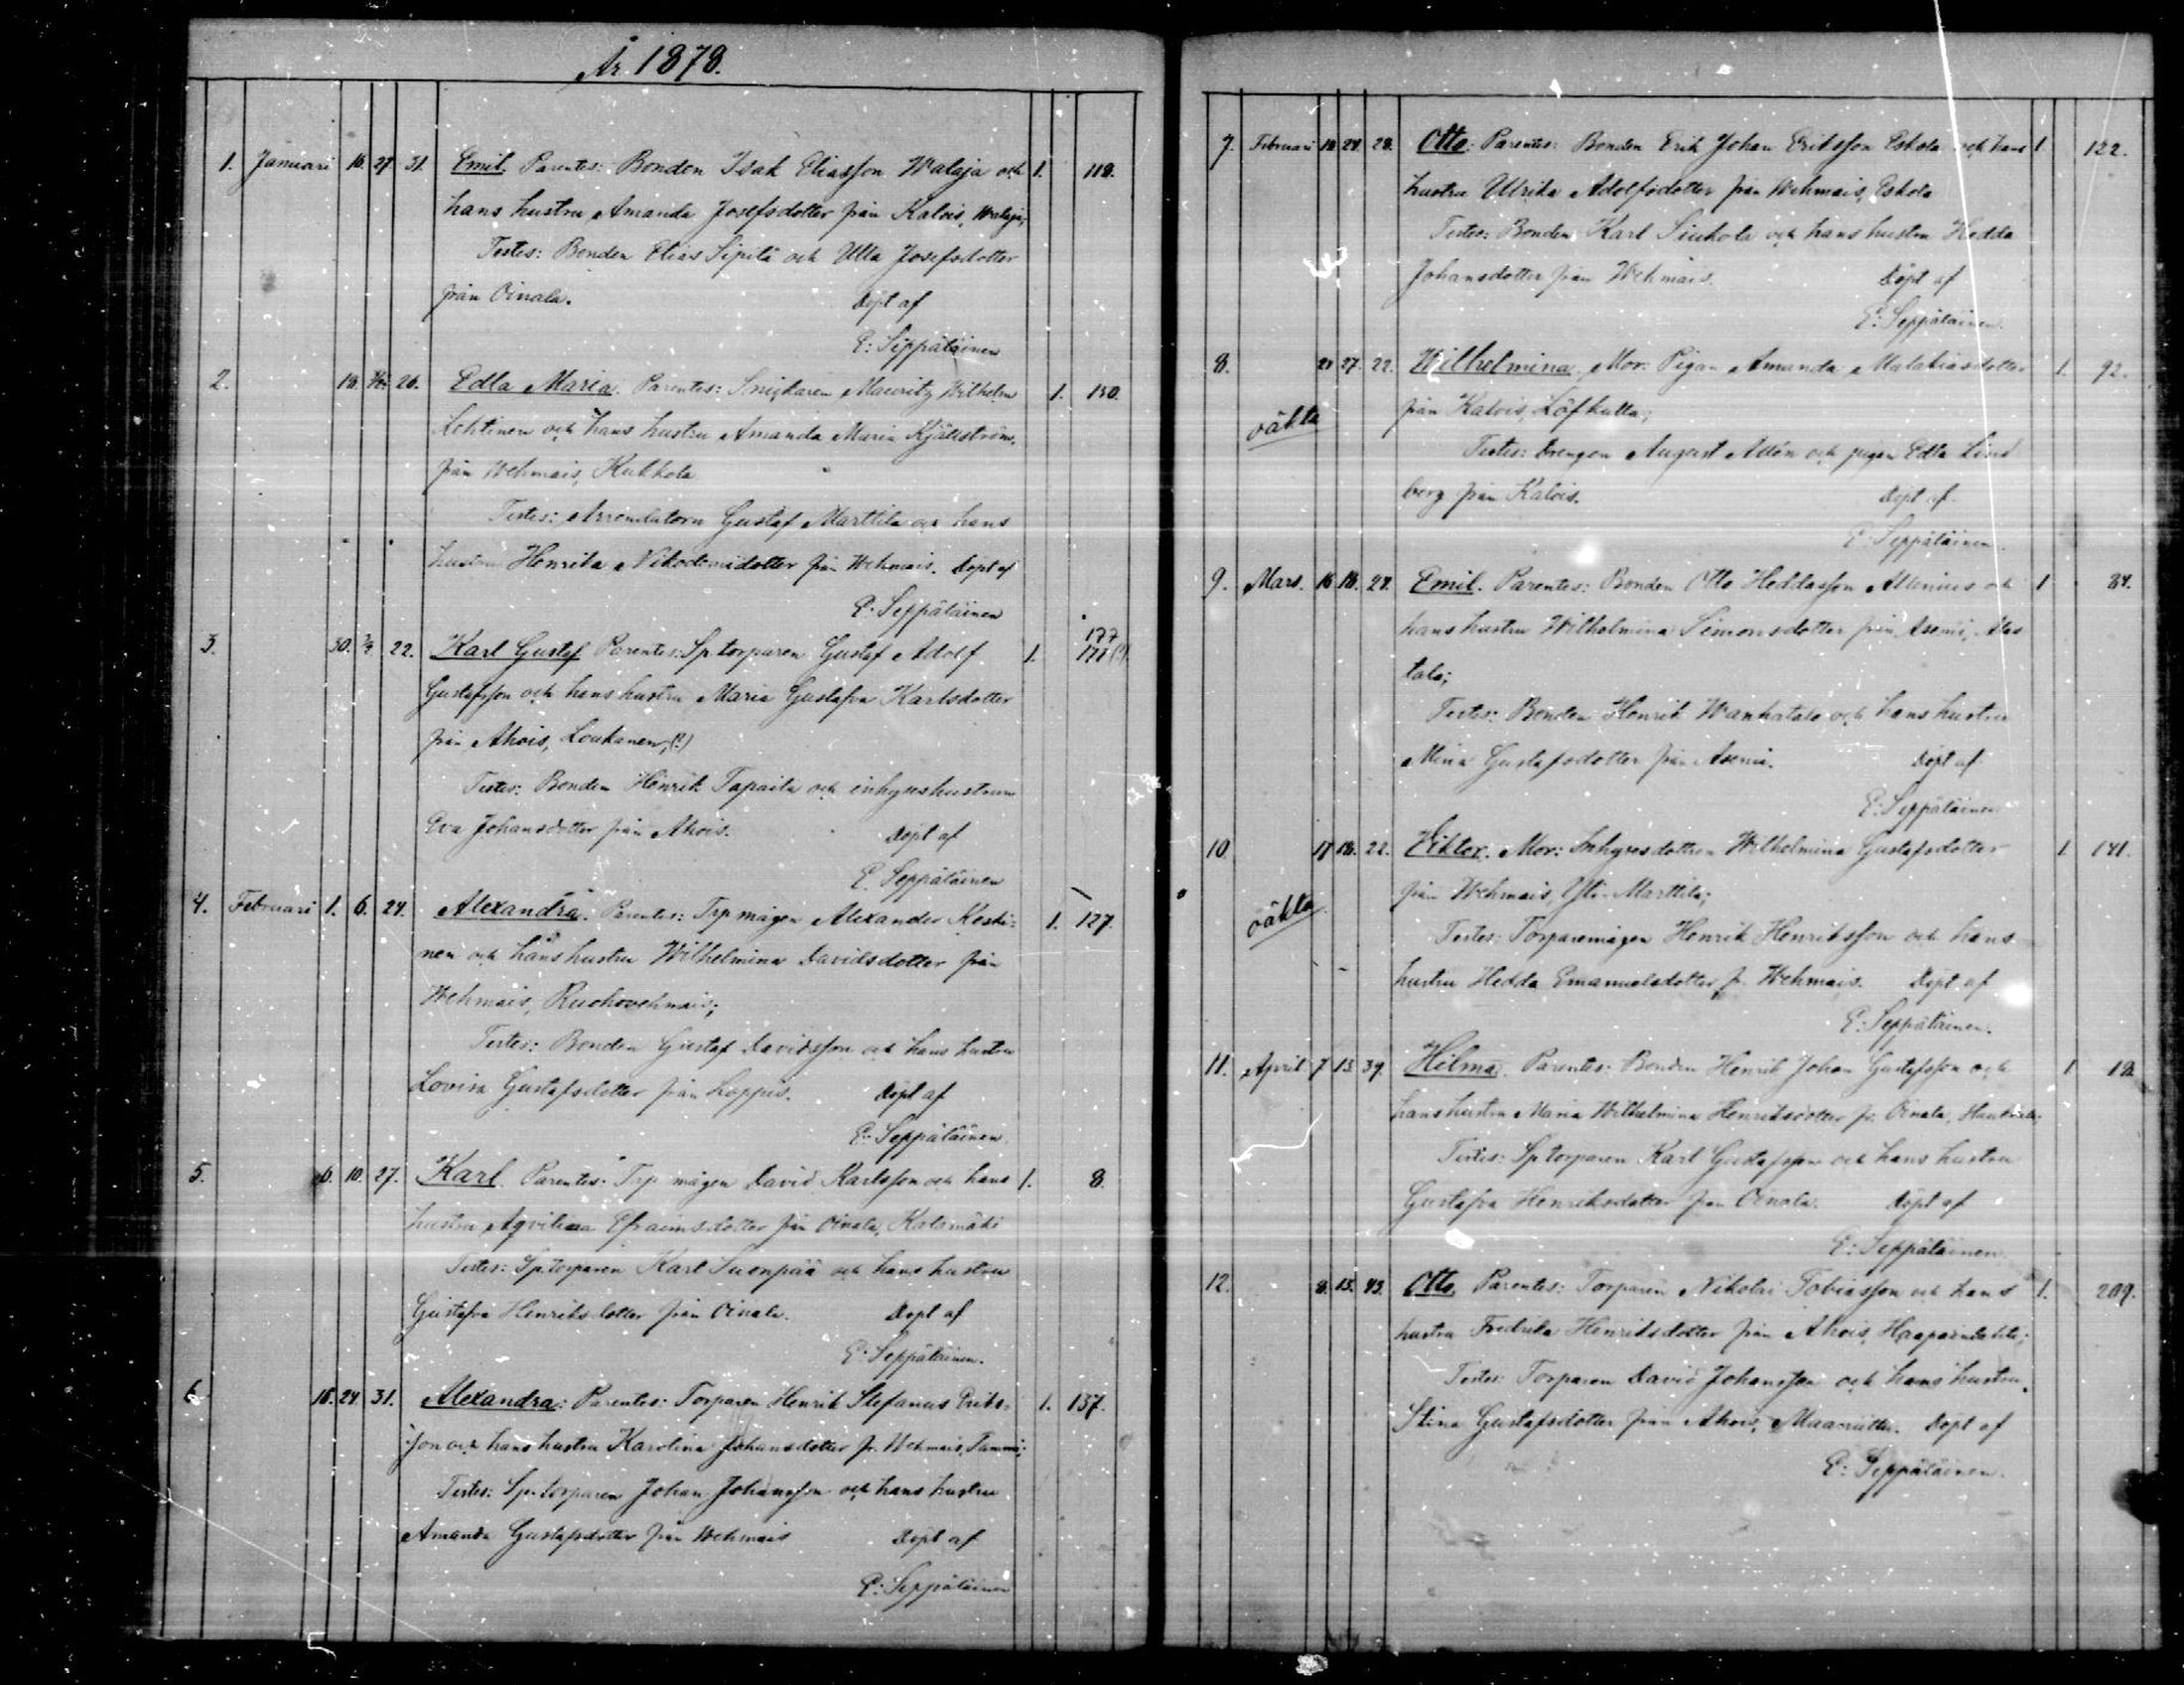 År 1878.
1. Januari 16. 27. 31. Emil. Parentes: Bonden Isak Eliasson Walaja och 1. 118.
hans hustru Amanda Josefsdotter från Kalois, Walaja;
Testes: Bonden Elias Sipilä och Ulla Josefsdotter
från Oinala. Döpt af
E: Seppäläinen
2. 18. 26. Edla Maria. Parentes: Snickaren Mauritz Wilhelm 1. 130.
Lehtinen och hans hustru Amanda Maria Kjällström,
från Wehmais, Kukkola
Testes: Arrendatorn Gustaf Marttila och hans
hustru Henrika Nikodemidotter från Wehmais. Döpt af
E. Seppäläinen
177
3. 30. 22. Karl Gustaf Parentes: Sp. torparen Gustaf Adolf 1. 171 (?)
Gustafsson och hans hustru Maria Gustafva Karlsdotter
från Ahois, Loukanen, (?)
Testes: Bonden Henrik Tapaila och inhyseshustrun
Eva Johansdotter från Ahois. Döpt af
E. Seppäläinen
4. Februari 1. 6. 24. Alexandra. Parentes: Trp mågen Alexander Koski= 1. 127.
nen och hans hustru Wilhelmina Davidsdotter från
Wehmais, Ruohovehmais;
Testes: Bonden Gustaf Davidsson och hans hustru
Lovisa Gustafsdotter från Loppis. Döpt af
E: Seppäläinen
5. 6. 10. 27. Karl. Parentes: Trp mågen David Karlsson och hans 1. 8.
hustru Aqvilina Efraimsdotter från Oinala, Kalamäki
Testes: Sp. torparen Karl Suonpää och hans hustru
Gustafva Henriksdotter från Oinala. Döpt af
E: Seppäläinen.
6. 18. 24. 31. Alexandra: Parentes: Torparen Henrik Stefanus Eriks= 1. 137.
son och hans hustru Karolina Johansdotter fr. Wehmais, Tammi;
Testes: Sp. torparen Johan Johansson och hans hustru
Amanda Gustafsdotter från Wehmais Döpt af
E: Seppäläinen
7. Februari 18 24. 28. Otto: Parentes: Bonden Erik Johan Eriksson Eskola och hans 1. 122.
hustru Ulrika Adolfsdotter från Wehmais, Eskola
Testes: Bonden Karl Siukola och hans hustru Hedda
Johansdotter från Wehmais. Döpt af
E: Seppäläinen.
8. 21 27. 22. Wilhelmina. Mor: Pigan Amanda Malakiasdotter 1. 92.
oäkta från Kalois, Löfkulla;
Testes: Drengen August Allén och pigan Edla Lind
berg från Kalois. Döpt af
E: Seppäläinen.
9. Mars. 16 18. 24. Emil. Parentes: Bonden Otto Heddasson Allenius och 1 84.
hans hustru Wilhelmina Simonsdotter från Asemi, Alas
talo;
Testes: Bonden Henrik Wanhatalo och hans hustru
Mina Gustafsdotter från Asemi. Döpt af
E: Seppäläinen
10 17 18. 22. Viktor. Mor: Inhyresdottren Wilhelmina Gustafsdotter 1. 141.
oäkta från Wehmais, Yli-Marttila;
Testes: Torparemågen Henrik Henriksson och hans
hustru Hedda Emanuelsdotter fr. Wehmais. Döpt af
E: Seppäläinen.
11. April 7 13. 39. Hilma. Parentes: Bonden Henrik Johan Gustafsson och 1 12
hans hustru Maria Wilhelmina Henriksdotter fr. Oinala,
Testes: Sp torparen Karl Gustafsson och hans hustru
Gustafva Henriksdotter från Oinala. Döpt af
E: Seppäläinen
12. 8. 13. 43. Otto. Parentes: Torparen Nikolai Tobiasson och hans 1. 209.
hustru Fredrika Henriksdotter från Ahois,
Testes: Torparen David Johansson och hans hustru
Stina Gustafsdotter från Ahois, Döpt af
E: Seppäläinen.